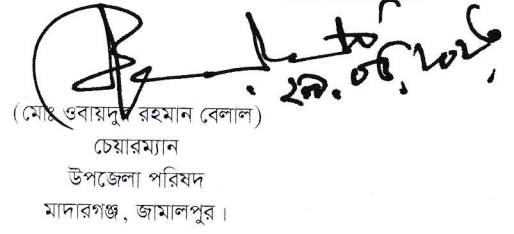 (মোঃ ওবায়দুর রহমান বেলাল)
চেয়ারম্যান
উপজেলা পরিষদ
মাদারগঞ্জ, জামালপুর।